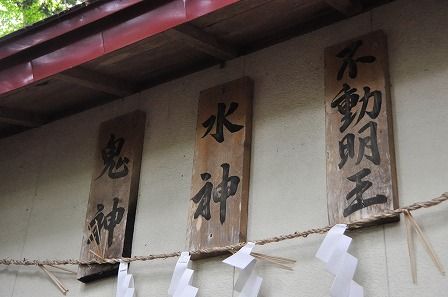 不動明王
水神
鬼神